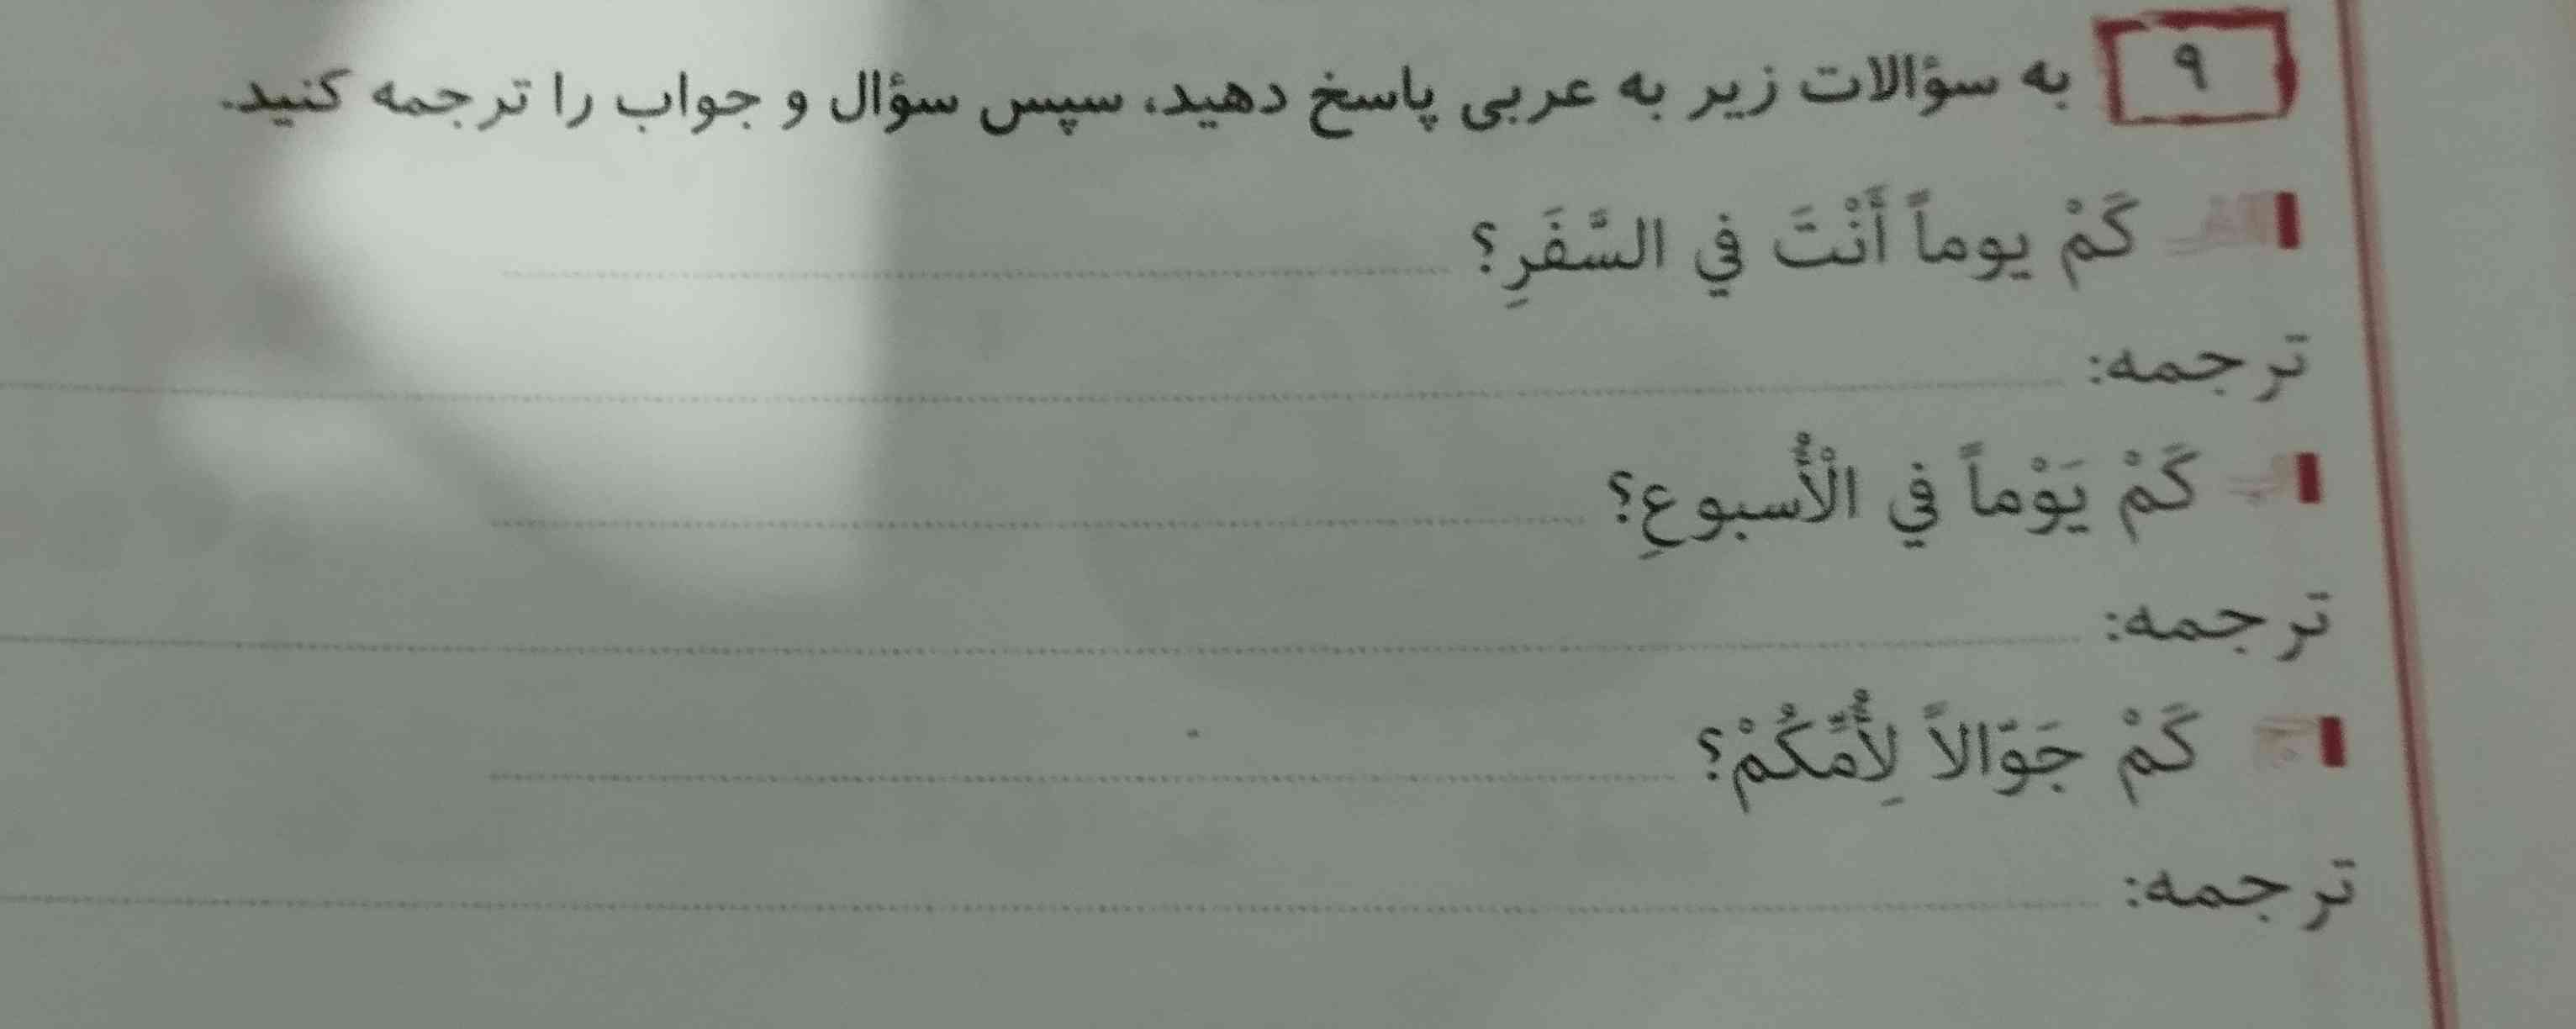 ۹ به سؤالات زیر به عربی پاسخ دهید، سپس سؤال و جواب را ترجمه کنید.
كَمْ يوماً أَنْتَ في السَّفَرِ؟
ترجمه:
كَمْ يَوْماً في الْأُسبوعِ؟
ترجمه:
كَمْ جَوّالاً لِأُمِّكُمْ؟
ترجمه: